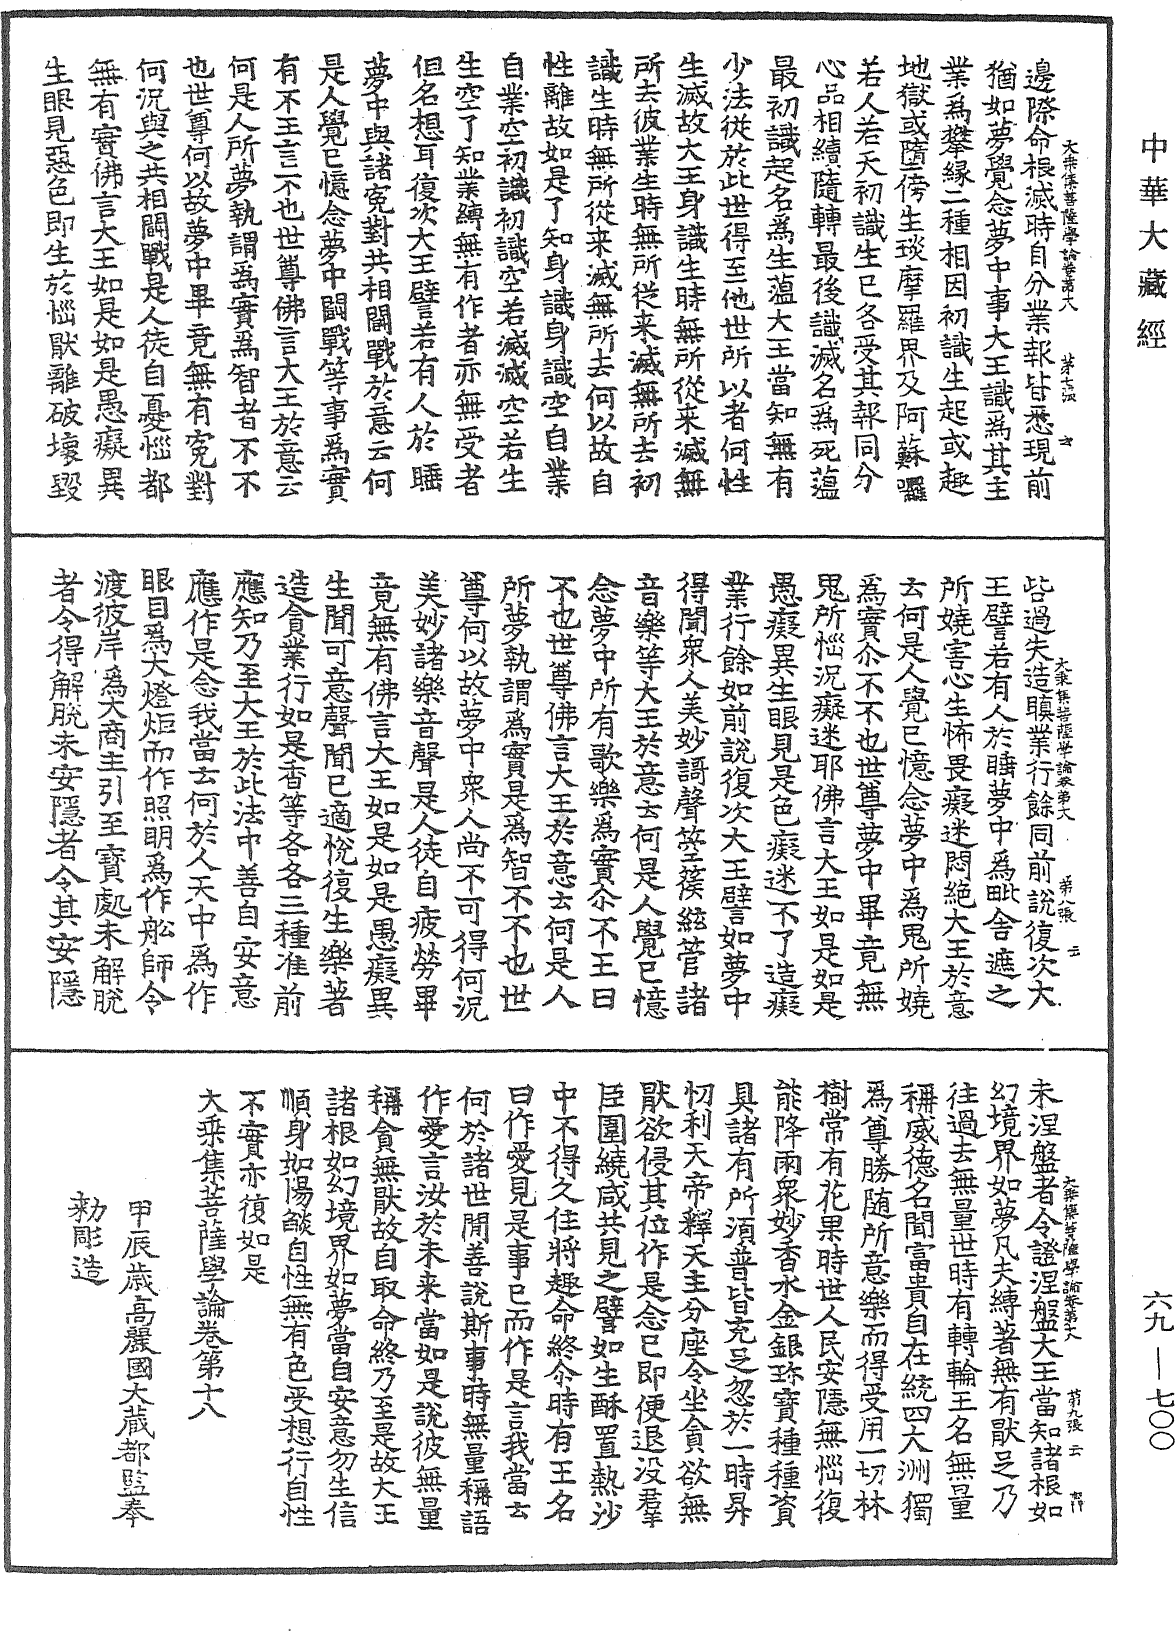 中華大藏經
大乗集菩薩學論卷第十八　第七張　云
邊際命根滅時自分業報皆悉現前
猶如夢覺念夢中事大王識爲其主
業爲攀緣二種相因初識生起或趣
地獄或墮傍生琰摩羅界及阿蘇囉
若人若天初識生已各受其報同分
心品相續隨轉最後識滅名爲死蘊
最初識起名爲生蘊大王當知無有
少法從於此世得至他世所以者何性
生滅故大王身識生時無所從来滅無
所去彼業生時無所従来滅無所去初
識生時無所從来滅無所去何以故自
性離故如是了知身識身識空自業
自業空初識初識空若滅滅空若生
生空了知業縛無有作者亦無受者
但名想耳復次大王譬若有人於睡
夢中與諸寃對共相鬪戰於意云何
是人覺已憶念夢中鬪戰等事爲實
有不王言不也世尊佛言大王於意云
何是人所夢執謂爲實爲智者不不
也世尊何以故夢中畢竟無有寃對
何況與之共相鬪戰是人徒自憂惱都
無有實佛言大王如是如是愚癡異
生眼見惡色即生於惱猒離破壞毀
大乗集菩薩學論卷第十八　第八張　云
呰過失造瞋業行餘同前說復次大
王譬若有人於睡夢中爲毗舎遮之
所嬈害心生怖畏癡迷悶絕大王於意
云何是人覺已憶念夢中爲鬼所嬈
爲實尒不不也世尊夢中畢竟無
鬼所惱況癡迷耶佛言大王如是如是
愚癡異生眼見是色癡迷不了造癡
業行餘如前說復次大王譬如夢中
得聞衆人美妙謌聲箜篌絃管諸
音樂等大王於意云何是人覺已憶
念夢中所有歌樂爲實尒不王曰
不也世尊佛言大王於意云何是人
所夢執謂爲實是爲智不不也世
尊何以故夢中衆人尚不可得何況
美妙諸樂音聲是人徒自疲勞畢
竟無有佛言大王如是如是愚癡異
生聞可意聲聞已適悅復生樂著
造貪業行如是香等各各三種准前
應知乃至大王於此法中善自安意
應作是念我當云何於人天中爲作
眼目爲大燈炬而作照明爲作舩師令
渡彼岸爲大商主引至寶處未解脫
者令得解脫未安隱者令其安隱
大乗集菩薩學論卷第十八　第九張　云
未涅盤者令證涅盤大王當知諸根如
幻境界如夢凡夫縛著無有猒足乃
往過去無量世時有轉輪王名無量
稱威德名聞富貴自在統四大洲獨
爲尊勝随所意樂而得受用一切林
樹常有花果時世人民安隱無惱復
能降雨衆妙香水金銀珎寶種種資
具諸有所湏普皆充足忽於一時昇
忉利天帝釋天主分座令坐貪欲無
猒欲侵其位作是念已即便退没羣
臣圍繞咸共見之譬如生酥置熱沙
中不得久住將趣命終尒時有王名
曰作愛見是事已而作是言我當云
何於諸世閒善說斯事時無量稱語
作愛言汝於未来當如是說彼無量
稱貪無猒故自取命終乃至是故大王
諸根如幻境界如夢當自安意勿生信
順身如陽燄自性無有色受想行自性
不實亦復如是
大乗集菩薩學論卷第十八
甲辰歳高麗國大藏都監奉
勑彫造
六九—七〇〇